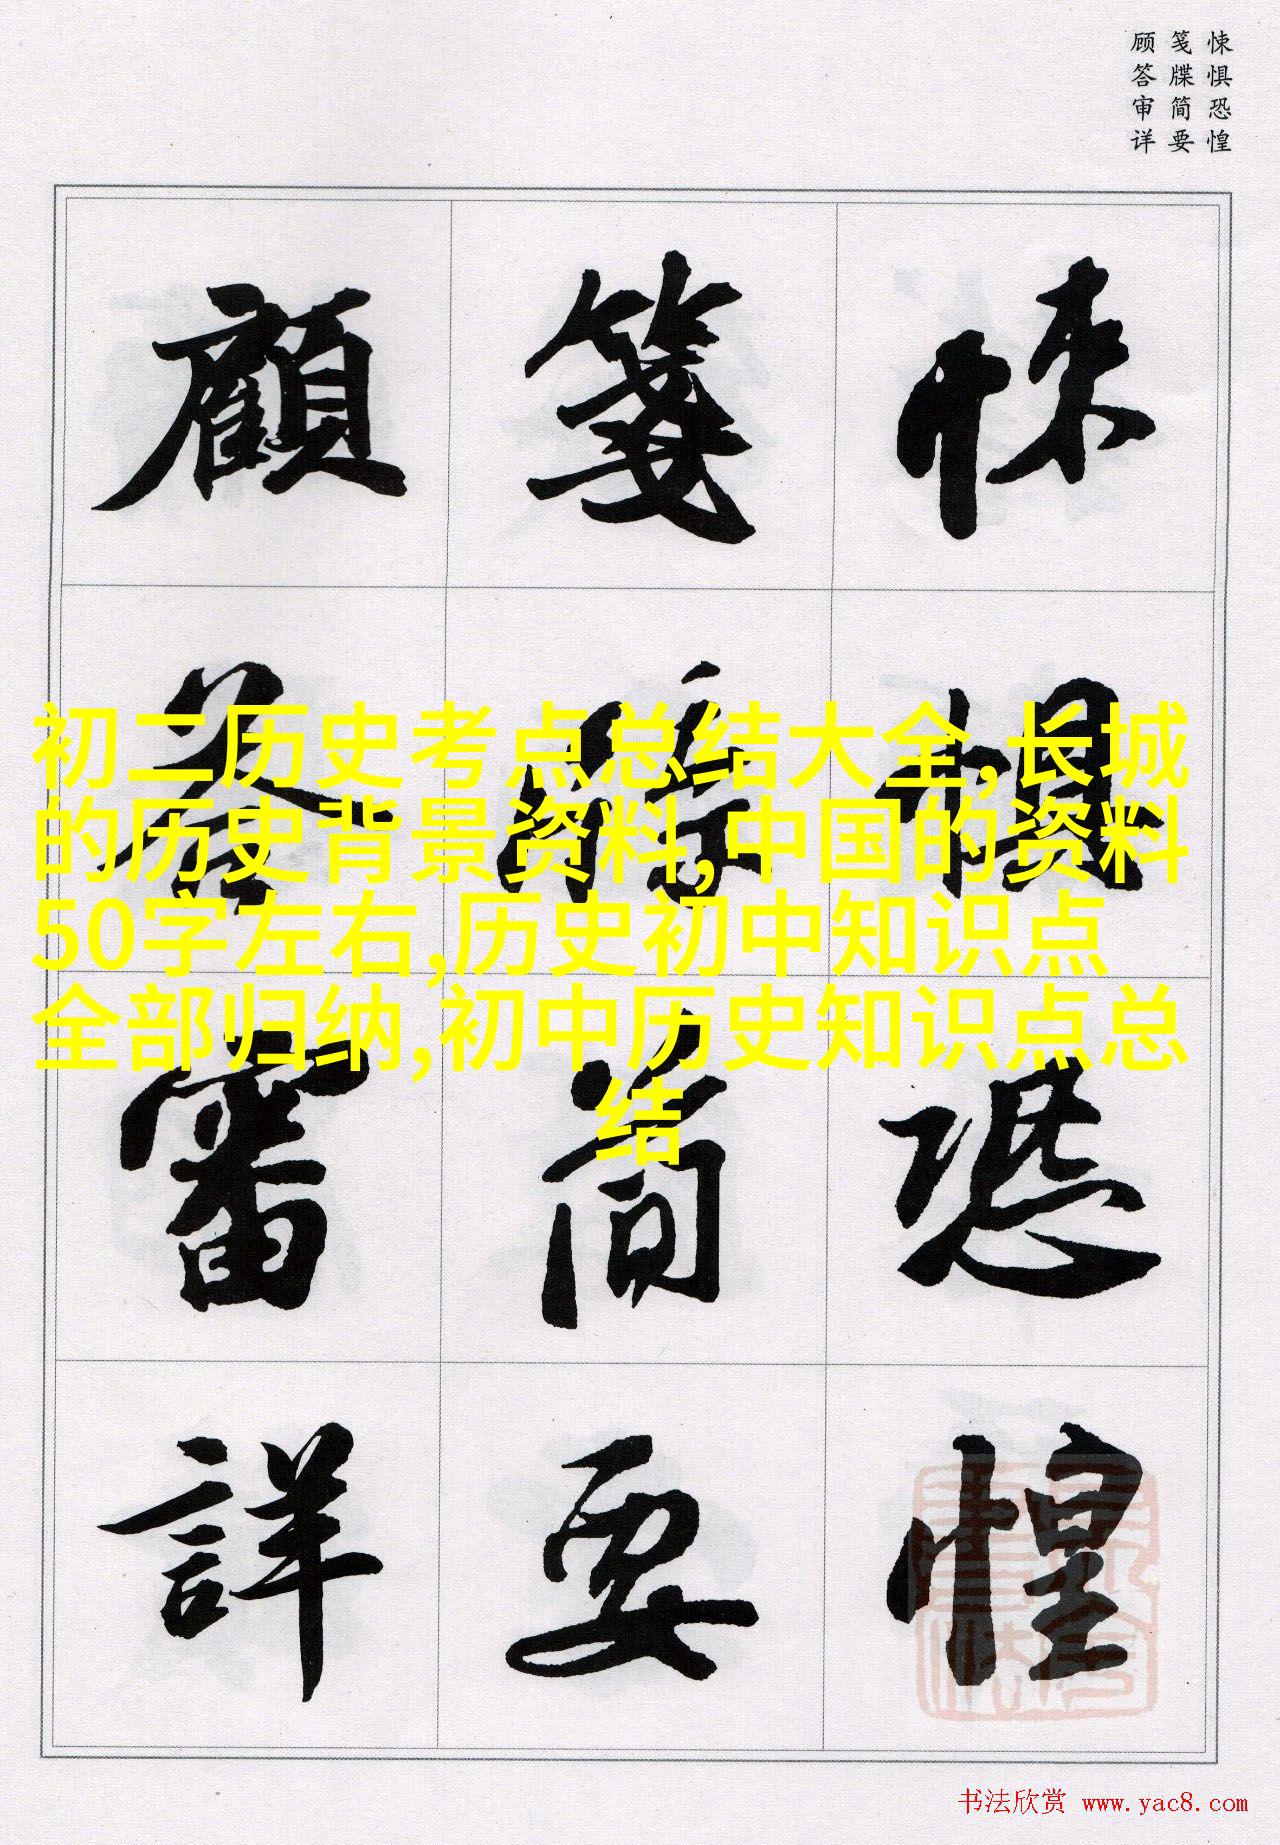 悚惧恐惶
笺牒简要
顾答审详
悚惧恐惶
笺牒简要
顧答審詳
初二历史考点总结大全,长城
的历史背景资料,中国的资料
50字左右,历史初中知识点
全部归纳,初中历史知识点总
结
书法欣赏 www.yac8.com